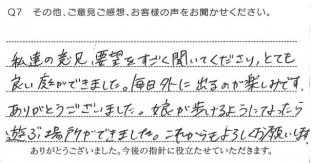 Q7 その他、ご意見ご感想、お客様の声をお聞かせください。
私達の意見、要望をすごく聞いてくださり、とても
良い庭ができました。毎日外に出るのが楽しみです。
ありがとうございました。娘が歩けるようになったら
遊ぶ場所ができました。これからもよろしくお願いします
ありがとうございました。今後の指針に役立たせていただきます。